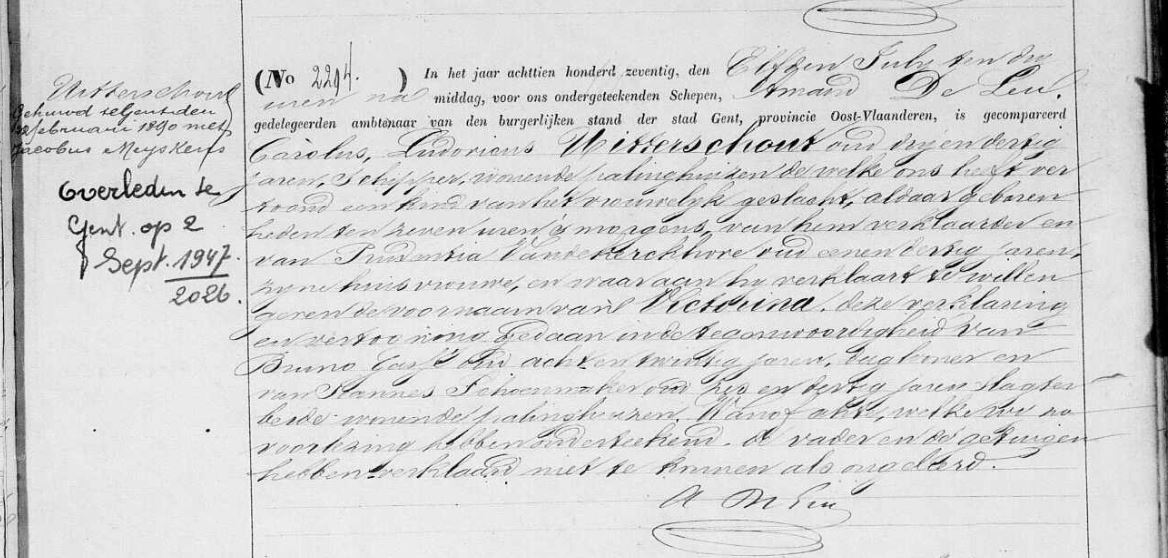 Uitterschout
Gehuwd te Gent den
12 februari 1890 met
Jacobus Muyskens
Overleden te
Gent op 2
Sept. 1947.
2026.
(No 2294. ) In het jaar achttien honderd zeventig, den Elfden July ten dry
uren na middag, voor ons ondergeteekenden Schepen, Amand De Leu.
gedelegeerden ambtenaar van den burgerlijken stand der stad Gent, provincie Oost-Vlaanderen, is gecompareerd
Carolus, Ludovicus Uitterschout oud dry en dertig
jaren, Schipper, wonende palinghuizen de welke ons heeft ver
toond een kind van het vrouwelyk geslacht, aldaar geboren
heden ten zeven uren 's morgens, van hem verklaarder en
van Prudentia Vandekerckhove oud eenen dertig jaren,
zyne huisvrouwe, en waaraan hy verklaart te willen
geven de voornaam van Victorina. deze verklaring
en vertooning gedaan in de tegenwoordigheid van
Bruno oud acht en twintig jaren, dagloner en
van Joannes Schoenmaker oud zes en dertig jaren slagter
beide wonende palinghuizen, Waarof akte, welke wy na
voorlezing hebben onderteekend. de vader en de getuigen
hebben verklaard niet te kunnen als ongeleerd.
A De Leu